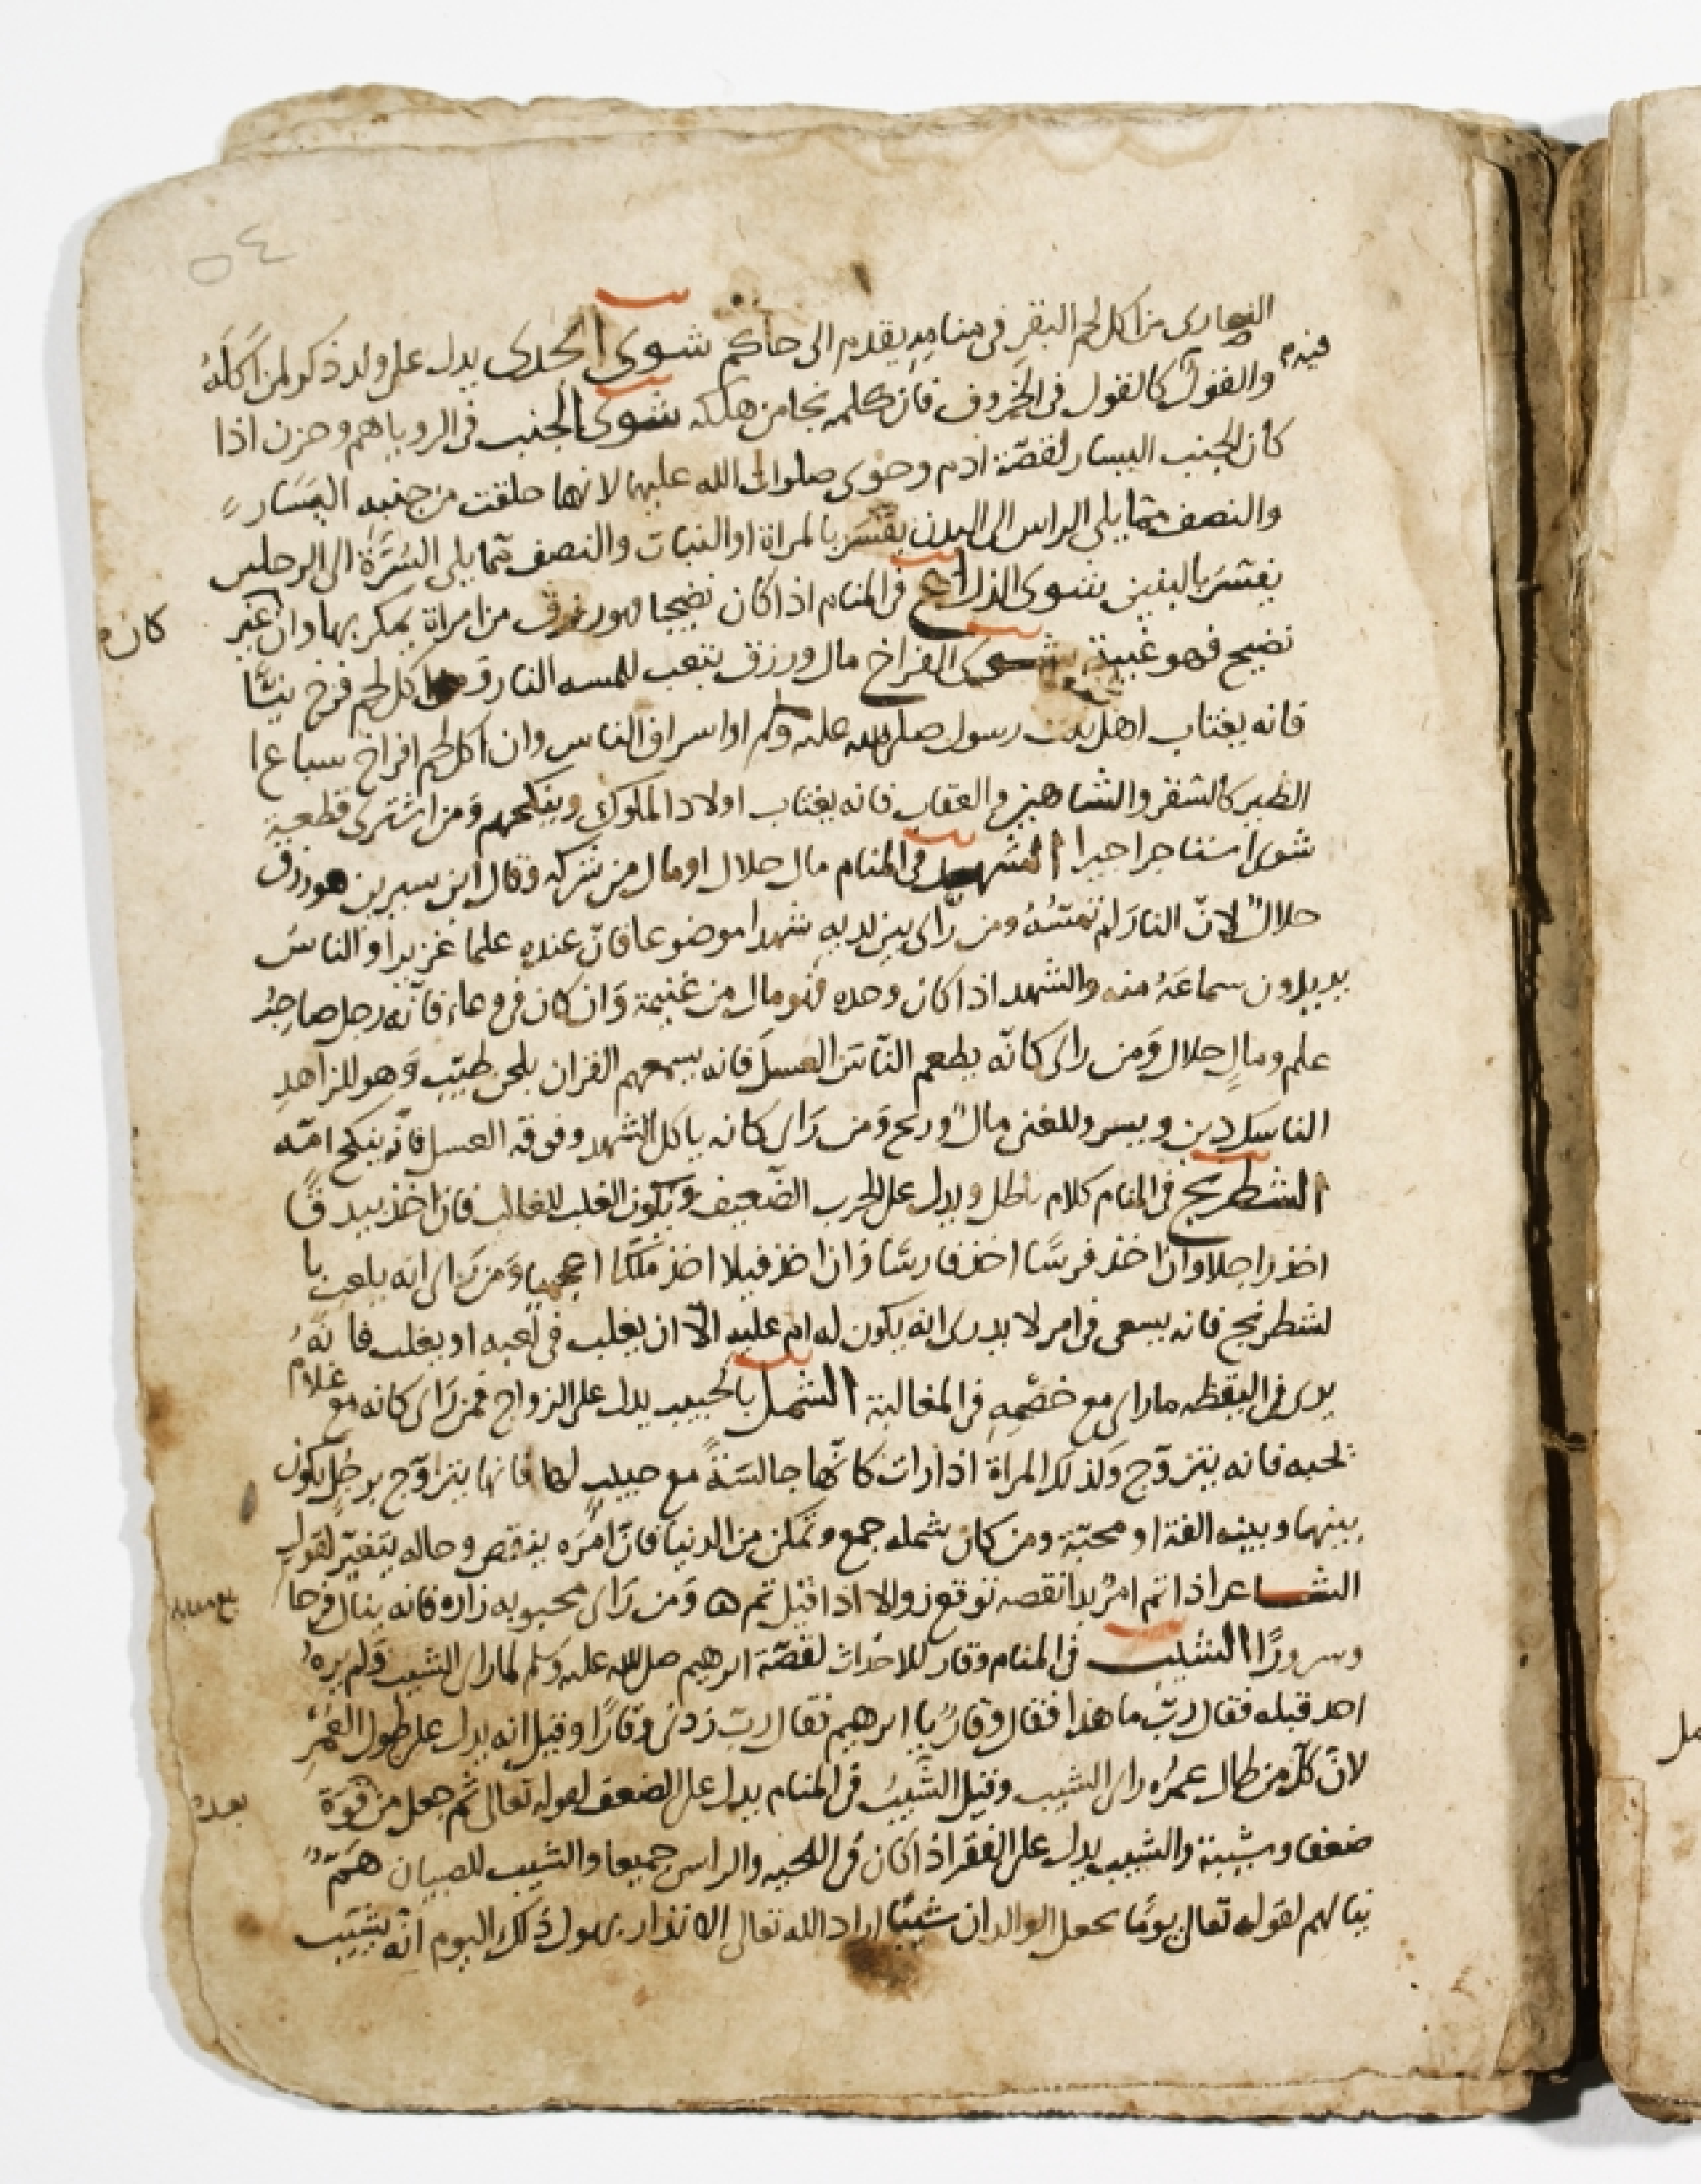 ٥٤
النصارى من اكل لحم البقر في منامه يقدم الى حاكم شوى الجدى يدل على ولد ذكر لمن اكله
فيه والقول كالقول في الخروف فان كلمه نجا من هلكه شوى الجنب في الرويا هم وحزن اذا
كان الجنب اليسار لقصّة ادم وحوى صلوات الله عليهما لانها خلقت من جنبه اليسار
والنصف مما يلي الراس الى البدن يفسّر بالمراة او البنات والنصف مما يلي السُّرَّة الى الرجلين
يفسّر بالبنين شوى الذراع في المنام اذا كان نضيجا فهو رزق من امراة يمكر بها وان غير
كان
نضيج فهو غيبة شوى الفراخ مال ورزق بتعب لمسه النار اكل لحم فرخ نيئا
فانه يغتاب اهل بيت رسول صلى الله عليه وسلم او اسراف الناس وان اكل لحم افراخ سباع ا
الطير كالشقر والشاهين والعقاب فانه يغتاب اولاد الملوك وينكحهم ومن اشترى قطعة
شوى استاجر اجيرا الشهد في المنام مال حلال او مال من شركه وقال ابن سيرين هو رزق
حلال لانّ النار لم تمسّهُ ومن راى بين يديه شهدا موضوعا فانّ عنده علما غزيرا والناس
يريدون سماعَهُ منه والشهد اذا كان وحده فهو مال من غنيمة وان كان في وعاء فانه رجل صاحبُ
علم ومالٍ حلال ومن راى كانّه يطعم النّاس العسل فانه يسمعهم القران بلحن طيّب وهو للزاهدِ
الناسك دين ويسر وللغنى مال وربح ومن راى كانه ياكل الشهد وفوقه العسل فانّه ينكح امّه
الشطرنج في المنام كلام باطل ويدل على الحرب الضعيف ويكون الغلب للغالب فان اخذ بيدقًا
اخذ راجلا وان اخذ فرسًا اخذ فارسًا وان اخذ فيلا اخذ ملكًا اعجميا ومن راى انه يلعب با
لشطرنج فانه يسعى في امر لا يدرى انه يكون له ام عليه الا ان يغلب في لعبه او يغلب فانهُ
يرى في اليقظه ماراى مع خصمه في المغالبة الشمل بالحبيب يدل على الزواج فمن راى كانه مع غلام
لحبه فانه يتزوّج وكذلك المراة اذا رات كانّها جالسَةً مع حبيب لها فانها يتزاوّج برجُل يكون
بينها وبينه الفة او محبّة ومن كان شمله جمع وتمكن من الدنيا فانّ امرَه ينقص وحاله يتغيّر لقول
الشاعر اذا تم امرٌ بدا نقصه توقع زوالا اذا قيل تم ه ومن راى محبوبه زاره فانه ينال فرحا
وسرورًا الشيب في المنام وقار للاحداث لقصّة ابرهيم صلى الله عليه وسلم لما راى الشيب ولم يرهُ
احد قبله فقال ربّ ما هذا فقال وقارٌ يا ابرهيم فقال ربّ زدنى وقارًا وقيل انه يدل على طول العُمُر
لانّ كلّ من طال عمرُه راى الشيب وقيل الشَّيبُ في المنام يدل على الضعف لقوله تعالى ثم جعل من قوّة
بعد
ضعفا وشيبة والشيب يدل على الفقر اذا كان في اللحيه والراس جميعا والشيب للصبيان همّ
ينالهم لقوله تعالى يومًا يجعل الوالدان شيبًا اراد الله تعالى الانذار بهول ذلك اليوم انّه يشيّب